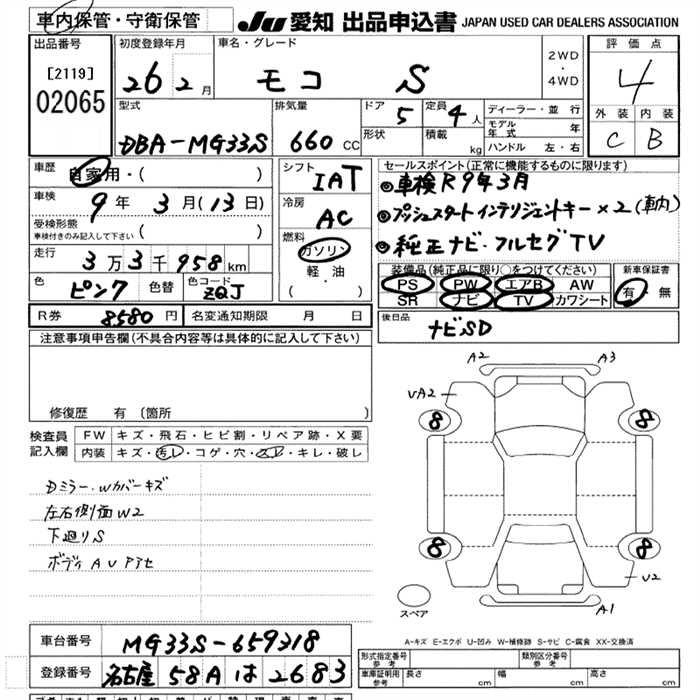 車内保管・守衛保管 JU 愛知 出品申込書 JAPAN USED CAR DEALERS ASSOCIATION
出品番号 初度登録年月 車名・グレード 評価点
[2119]
02065
26 2月 モコ S 2WD・4WD 4
型式 排気量 ドア 5 定員 4人 ディーラー・並行 外装 内装
DBA-MG33S 660 CC 形状 積載 kg モデル年式 年 C B
ハンドル 左・右
車歴 自家用・( ) シフト IAT セールスポイント(正常に機能するものに限ります)
車検 9年 3月(13日) 冷房 AC ◎車検R9年3月
受検形態 ( )
車検付きのみ記入して下さい
◎プッシュスタートインテリジェントキー×2(車内)
走行 3万3千958km 燃料 ガソリン 軽油 ( ) ◎純正ナビ・フルセグTV
色 ピンク 色替 色コード ZQJ
装備品(純正品に限り○をつけてください) 新車保証書
PS PW エアB AW 有・無
SR ナビ TV カワシート
R券 8580円 名変通知期限 月 日 後日品 ナビSD
注意事項申告欄(不具合内容等は具体的に記入して下さい)
修復歴 有 (箇所 )
検査員記入欄 FW キズ・飛石・ヒビ割・リペア跡・X要
内装 キズ・汚レ・コゲ・穴・スレ・キレ・破レ
Dミラー・Wカバーキズ
左右側面W2
下廻りS
ボディAUアセ
A2 A3
UA2
8 8
8 8
U2
スペア A1
A-キズ E-エクボ U-凹み W-補修跡 S-サビ C-腐食 XX-交換済
車台番号 MG33S-659318
登録番号 名古屋 58A は 2683
形式指定番号 参考 類別区分番号 参考
車庫証明用 参考 長さ 幅 高さ